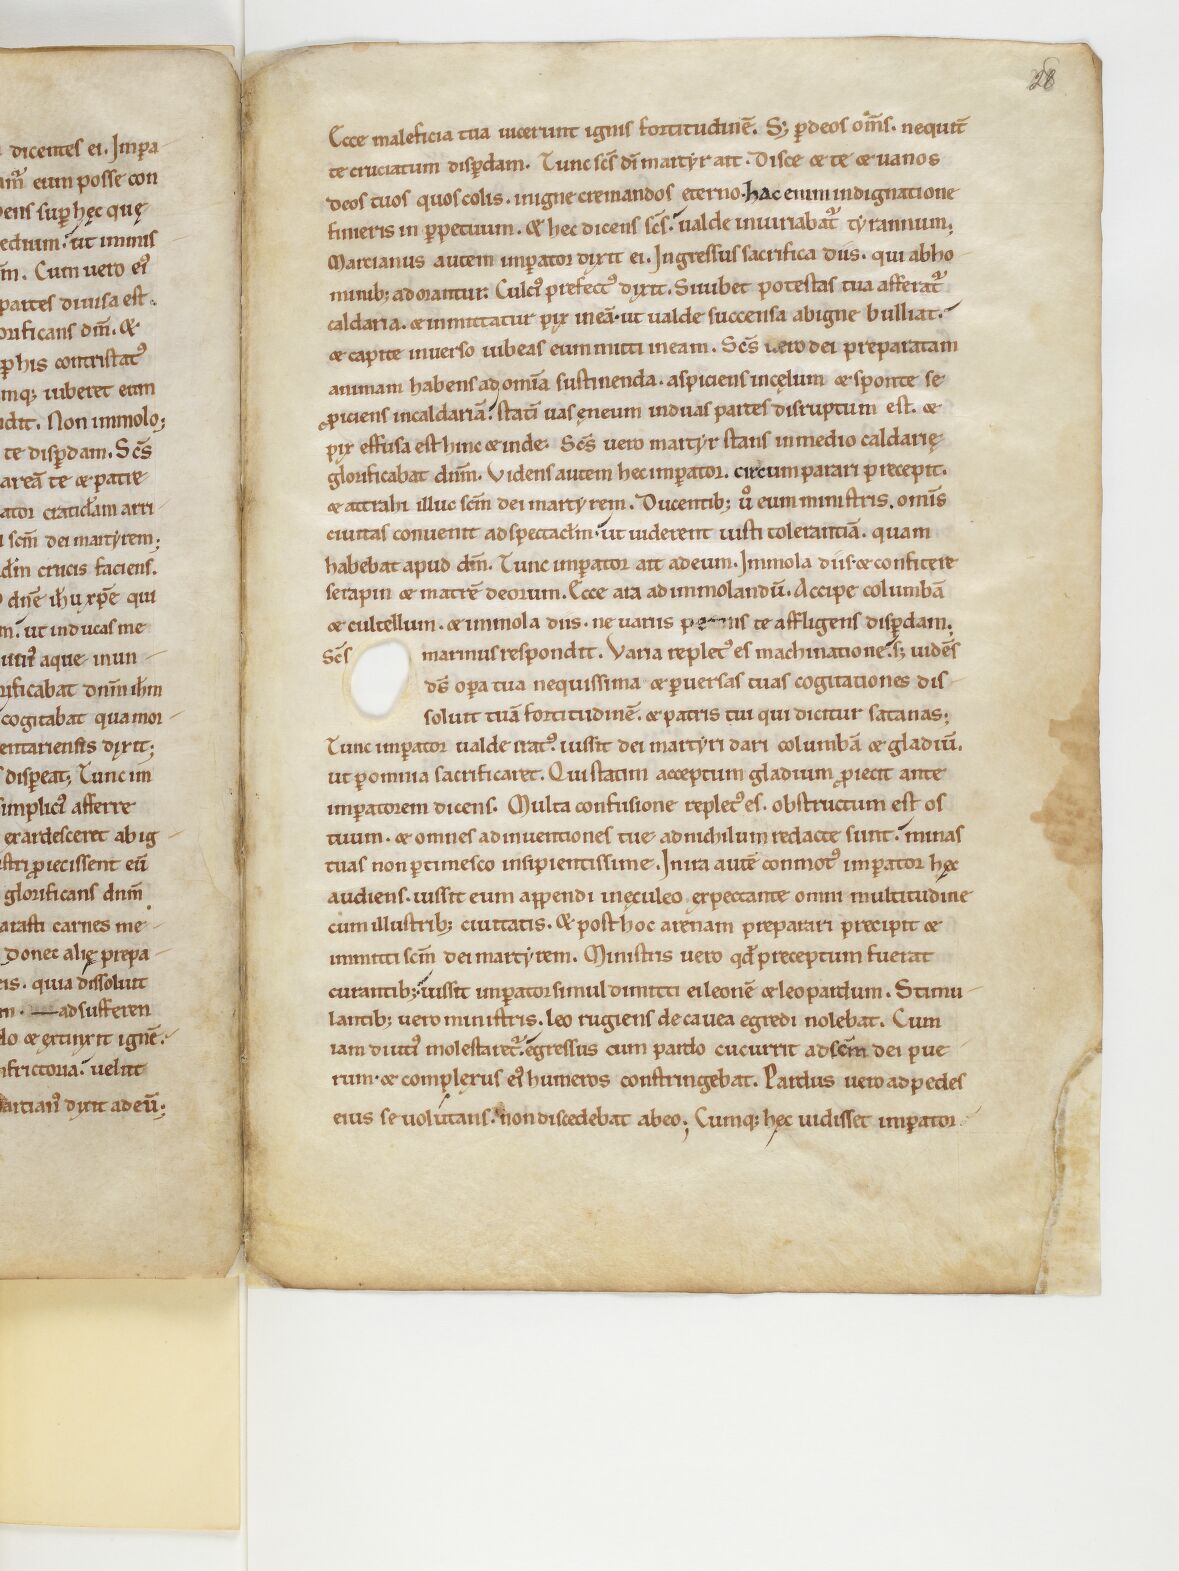 dicentes ei. Impa
am̅ eum posse con
dens sup̲ hęc quę
edium. ut inimis
m̅. Cum uero ei᷒
partes diuisa est.
orificans dm̅. &
p̲ his contristat᷒
mq; iuberet eum
ndit. Non immolo;
te disp̲dam. Sc̅s
area̅ te & patie
ator craticlam arri
sc̅m dei martyrem;
dm̅ crucis faciens.
dn̅e ih̅u xp̅e qui
m. ut inducas me
aque inun
rificabat dn̅m ih̅m
cogitabat qua mor
entariensis dixit;
disp̲eat; Tunc im
simplici᷒ afferre
exardesceret ab ig
stri ꝓiecissent eu̅
glorificans dnm̅
arasti carnes me
donec alię prepa
eis. quia dissoluit
m. ad sufferen
do & extinxit igne̅.
frictoria. uelut
artian᷒ dixit ad eu̅;
28
Ecce maleficia tua uicerunt ignis fortitudine̅. S; p̲ deos om̅s. nequit̅
te cruciatum disp̲dam. Tunc sc̅s di̅ martyr ait. Disce & te & uanos
deos tuos quos colis. in igne cremandos eterno. hac enim indignatione
funeris in p̲petuum. & hec dicens sc̅s. ualde iniuriabat᷑ tyrannum;
Martianus autem imp̲ator dixit ei. Ingressus sacrifica diis. qui ab ho
minib; adorantur. Culci᷒ prefect᷒ dixit. Si iubet potestas tua afferat᷑
caldaria. & inmittatur pix in ea̅. ut ualde succensa ab igne bulliat.
& capite inuerso iubeas eum mitti in eam. Sc̅s uero dei preparatam
animam habens ad omi̅a sustinenda. aspiciens in cęlum & sponte se
ꝓiciens in caldaria̅. stati̅ uas ęneum in duas partes disruptum est. &
pix effusa est hinc & inde. Sc̅s uero martyr stans in medio caldarię
glorificabat dn̅m. Videns autem hec imp̲ator. circum parari precepit.
& attrahi illuc sc̅m dei martyrem. Ducentib; ů eum ministris. omi̅s
ciuitas conuenit ad spectaclm̅. ut uiderent iusti tolerantia̅. quam
habebat apud dm̅. Tunc imp̲ator ait ad eum. Immola diis. & confitere
serapin & matre̅ deorum. Ecce ara ad immolandu̅. Accipe columba̅
& cultellum. & immola diis. ne uariis penis te affligens disp̲dam.
Sc̅s marinus respondit. Varia replet᷒ es machinatione. s; uide̅s
ds̅ op̲a tua nequissima & p̲uersas tuas cogitationes dis
soluit tua̅ fortitudine̅. & patris tui qui dicitur satanas;
Tunc imp̲ator ualde irat᷒. iussit dei martyri dari columba̅ & gladiu̅.
ut p̲ omnia sacrificaret. Qui statim acceptum gladium ꝓiecit ante
imp̲atorem dicens. Multa confusione replet᷒ es. obstructum est os
tuum. & omnes adinuentiones tue ad nichilum redacte sunt. minas
tuas non p̲timesco insipientissime. In ira aute̅ conmot᷒ imp̲ator hęc
audiens. iussit eum appendi in ęculeo expectante omni multitudine
cum illustrib; ciuitatis. & post hoc arenam preparari precipit &
immitti sc̅m dei martyrem. Ministris uero qd̅ preceptum fuerat
curantib; iussit imp̲ator simul dimitti ei leone̅ & leopardum. Stimu
lantib; uero ministris. leo rugiens de cauea egredi nolebat. Cum
iam diuti᷒ molestaret᷑. egressus cum pardo cucurrit ad sc̅m dei pue
rum. & complexus ei᷒ humeros constringebat. Pardus uero ad pedes
eius se uolutans. non discedebat ab eo; Cumq; hęc uidisset imp̲ator